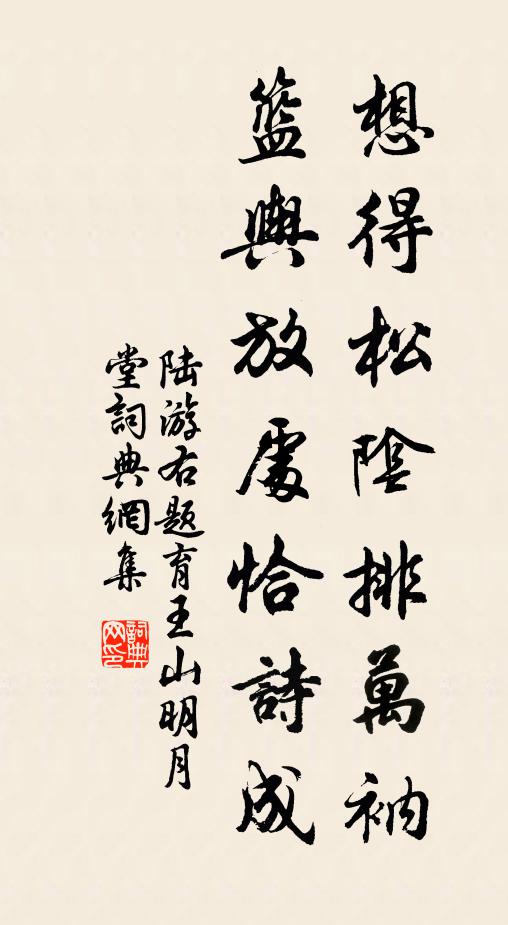 想得松陰排萬衲
籃輿放處恰詩成
陸游右題育王山明月
堂詞典網集
詞典網印